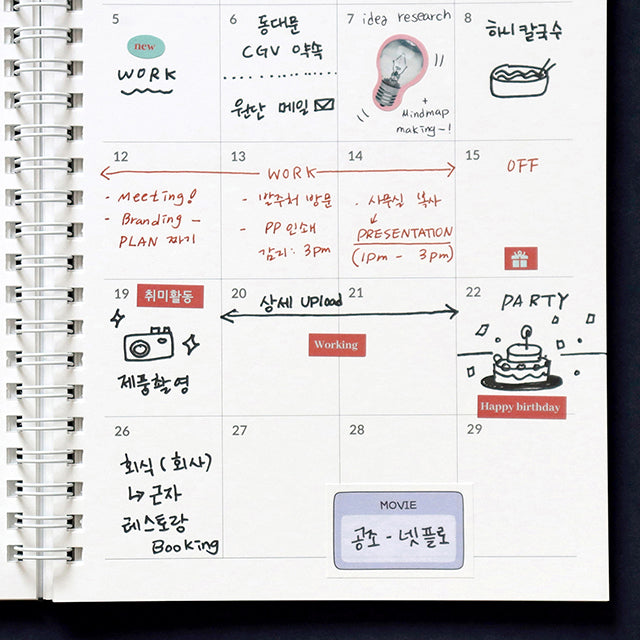 5
new
WORK
6
동대문
CGV 약속
원단 메일
7
idea research
+
Mindmap
making~!
8
하니칼국수
12
13
14
WORK
- Meeting!
- Branding -
PLAN 짜기
- 발주처 방문
- PP 인쇄
감리: 3pm
- 사무실 복사
PRESENTATION
(1pm - 3pm)
15
OFF
19
취미활동
제품촬영
20
상세 UPload
21
Working
22
PARTY
Happy birthday
26
회식 (회사)
↳ 근자
레스토랑
Booking
27
28
MOVIE
공조 - 넷플로
29